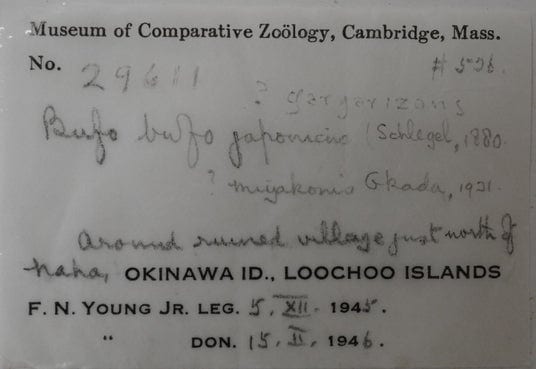 Museum of Comparative Zoölogy, Cambridge, Mass.
No. 29611 # 526.
? gargarizans
Bufo bufo japonicus (Schlegel, 1880.
? miyakonis Okada, 1931.
around ruined village just north of
Naha, OKINAWA ID., LOOCHOO ISLANDS
F. N. YOUNG JR. LEG. 5, XII. 1945.
" DON. 15, II, 1946.